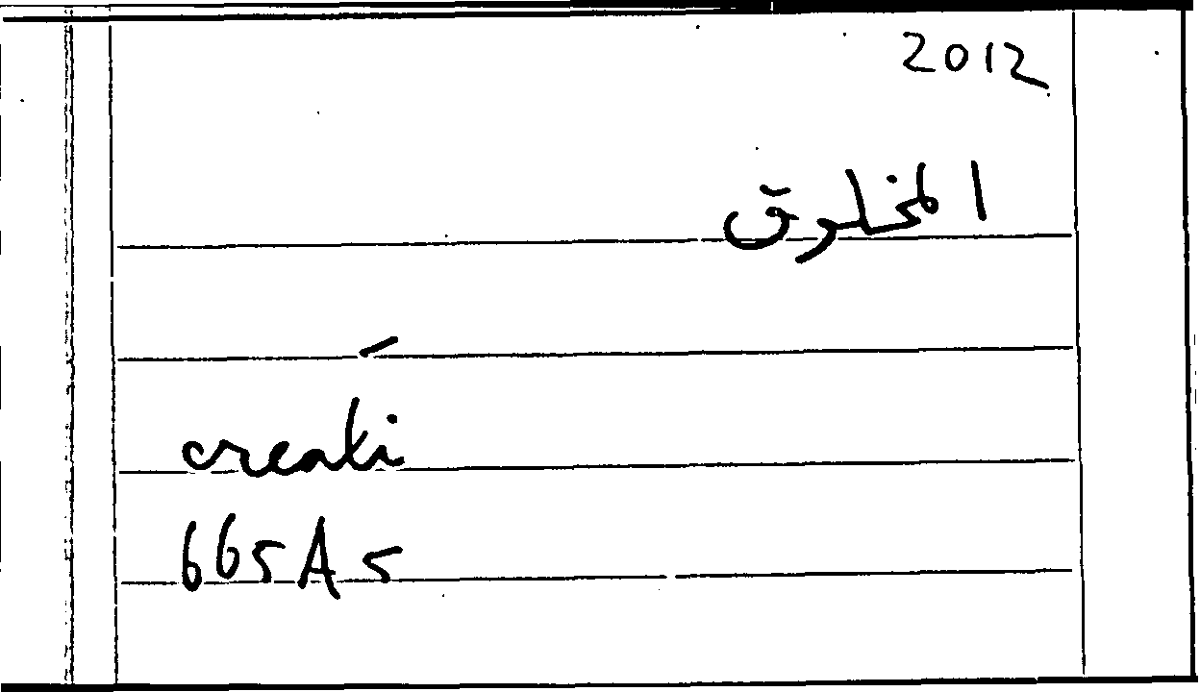 2012
المخلوق
creati
665A5